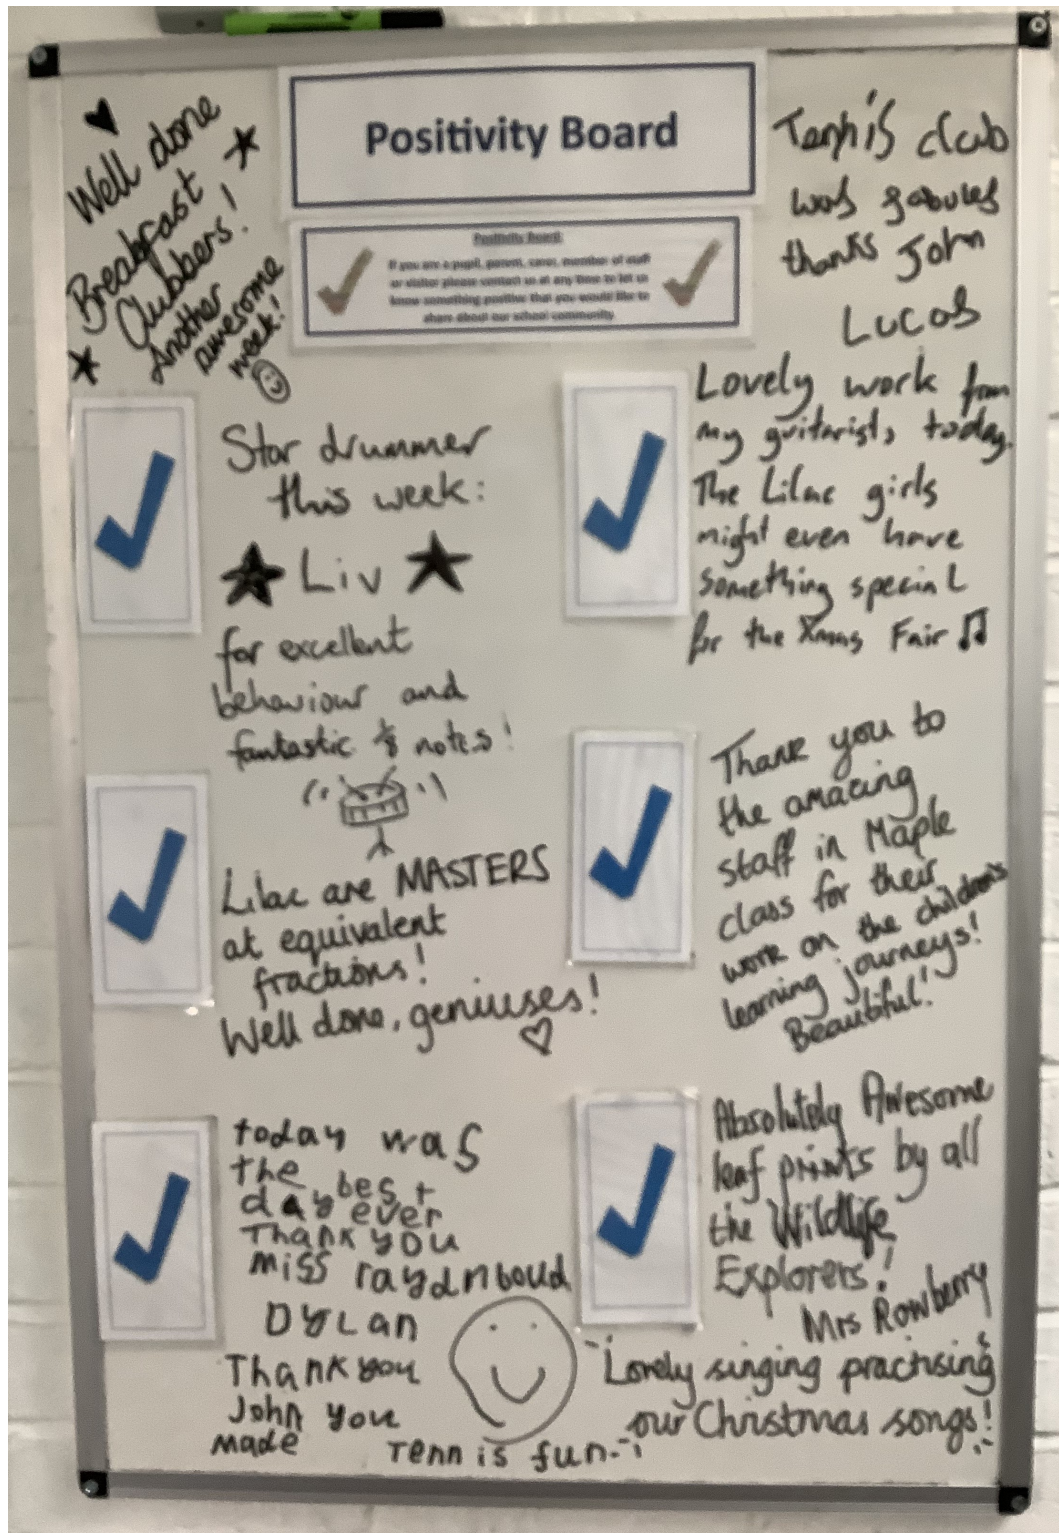 Positivity Board
Positivity Board
If you are a pupil, parent, carer, member of staff
or visitor please contact us at any time to let us
know something positive that you would like to
share about our school community.
Well done
Breakfast
Clubbers!
Another
awesome
week!
Tennis club
was fabules
thanks John
Lucas
Star drummer
this week:
Liv
for excellent
behaviour and
fantastic 1/8 notes!
Lovely work from
my guitarists, today.
The Lilac girls
might even have
something special
for the Xmas Fair
Lilac are MASTERS
at equivalent
fractions!
Well done, geniuses!
Thank you to
the amazing
staff in Maple
class for their
work on the children's
learning journeys!
Beautiful!
today was
the best
day ever
Thank you
miss
DYLan
Thank you
John you
made Tennis fun
Absolutely Awesome
leaf prints by all
the Wildlife
Explorers!
Mrs Rowberry
Lovely singing practising
our Christmas songs!